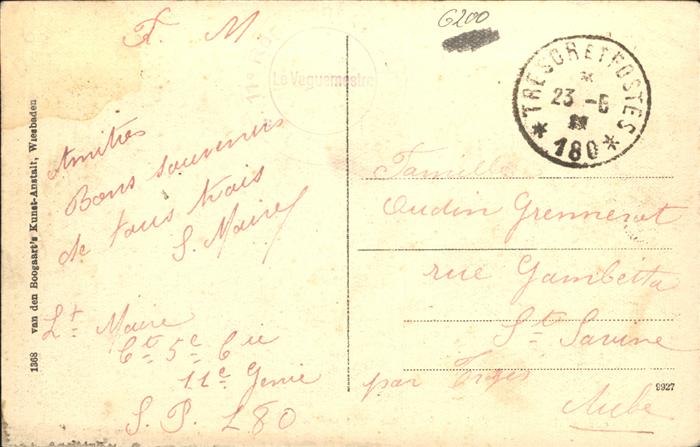 F. M
6200
11e R
Le Vaguemestre
TRESOR ET POSTES
23 - 6
* 180 *
Amitiés
Bons souvenirs
de tous trois
S. Maire
Lt Maire
Ct 5e Cie
11e Génie
S. P. 180
Famille
Oudin Grennerat
rue Gambetta
Ste Savine
par Troyes
Aube
1368 van den Boogaart's Kunst-Anstalt, Wiesbaden
9927